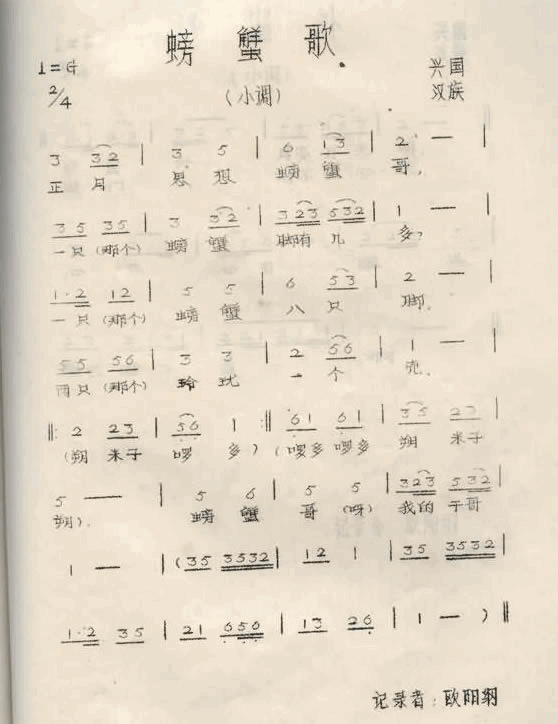 螃蟹歌
1=G 兴国
2/4 (小调) 汉族
3 32 | 3 5 | 6 13 | 2 — |
正月 思想 螃蟹 哥,
35 35 | 3 32 | 323 532 | 1 — |
一只(那个) 螃蟹 脚有几 多?
1·2 12 | 5 5 | 6 53 | 2 — |
一只(那个) 螃蟹 八只 脚,
55 56 | 3 3 | 2 56 | 1 — |
两只(那个) 一个 壳,
‖: 2 23 | 56 1 :‖ 61 61 | 35 23 |
(朔 米子 啰 多)(啰多啰多 朔 米子
5 — | 5 6 | 5 5 | 323 532 |
朔). 螃蟹 哥(呀) 我的 干哥
1 — | (35 3532 | 12 1 | 35 3532 |
1·2 35 | 21 656 | 13 26 | 1 — ) ‖
记录者:欧阳纲